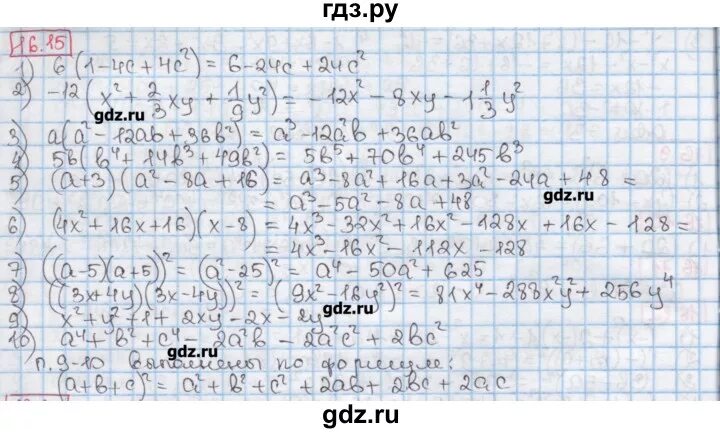 гдз.ру
16.15
1) 6(1-4c+4c²) = 6-24c+24c²
2) -12(x²+2/3xy+1/9y²) = -12x²-8xy-1 1/3y²
gdz.ru
3) a(a²-12ab+36b²) = a³-12a²b+36ab²
4) 5b(b⁴+14b³+49b²) = 5b⁵+70b⁴+245b³
5) (a+3)(a²-8a+16) = a³-8a²+16a+3a²-24a+48 =
= a³-5a²-8a+48
gdz.ru
6) (4x²+16x+16)(x-8) = 4x³-32x²+16x²-128x+16x-128 =
= 4x³-16x²-112x-128
7) ((a-5)(a+5))² = (a²-25)² = a⁴-50a²+625
gdz.ru
8) ((3x+4y)(3x-4y))² = (9x²-16y²)² = 81x⁴-288x²y²+256y⁴
9) x²+y²+1+2xy-2x-2y
10) a⁴+b²+c⁴-2a²b-2a²c²+2bc²
gdz.ru
п. 9-10 выполнены по формуле:
(a+b+c)² = a²+b²+c²+2ab+2bc+2ac
gdz.ru